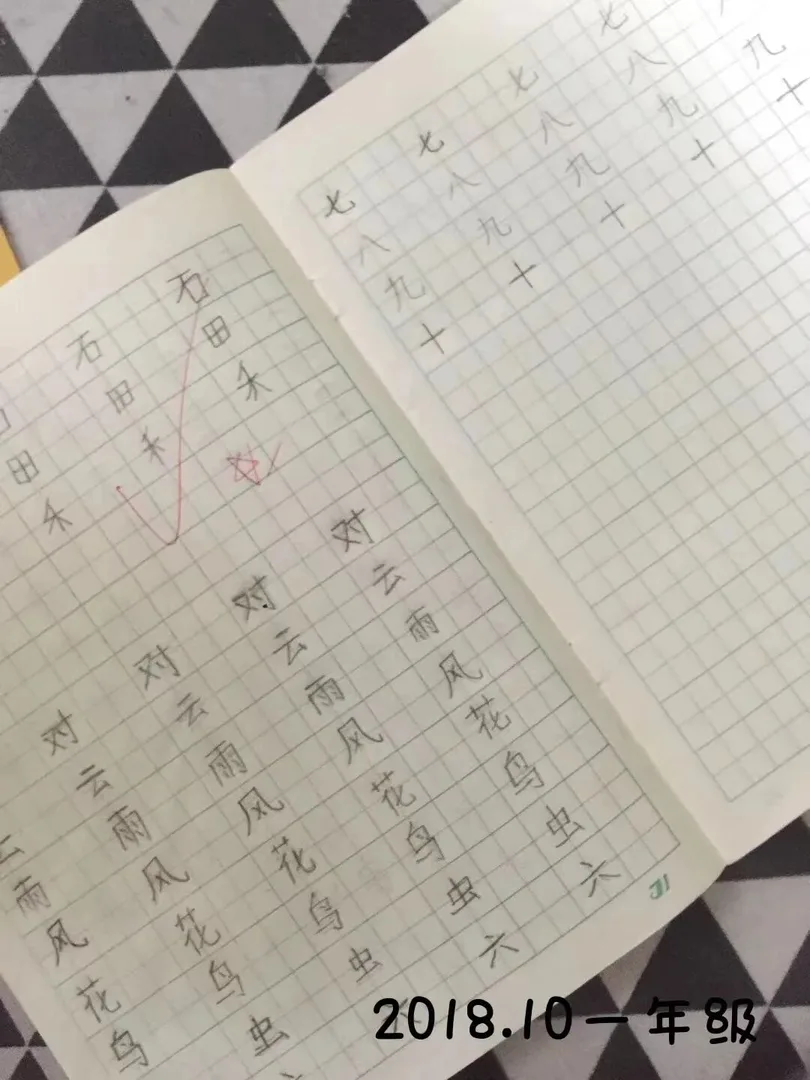 石 石
田 田 田
禾 禾 禾
对 对 对 对
云 云 云 云
雨 雨 雨 雨 雨
风 风 风 风 风
花 花 花 花 花
鸟 鸟 鸟 鸟 鸟
虫 虫 虫 虫
六 六
七 七 七 七
八 八 八 八
九 九 九 九 九
十 十 十 十 十
2018.10一年级